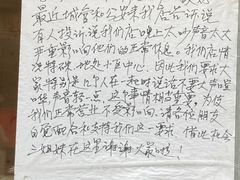 最近城管和公安来我店告诉说
有人投诉说我们店晚上人叫声音太大
严重影响他们的正常休息。我们店情
况特殊,地处小区中心,因此我们要求大
家特别是几个人在一起时说话不要大声喧
哗声音轻点,这个事情相当重要。为使
我们正常营业不受影响,请各位朋友
自觉配合木支持我们这一要求 借此机会
三姐妹在这里谢谢大家啦!